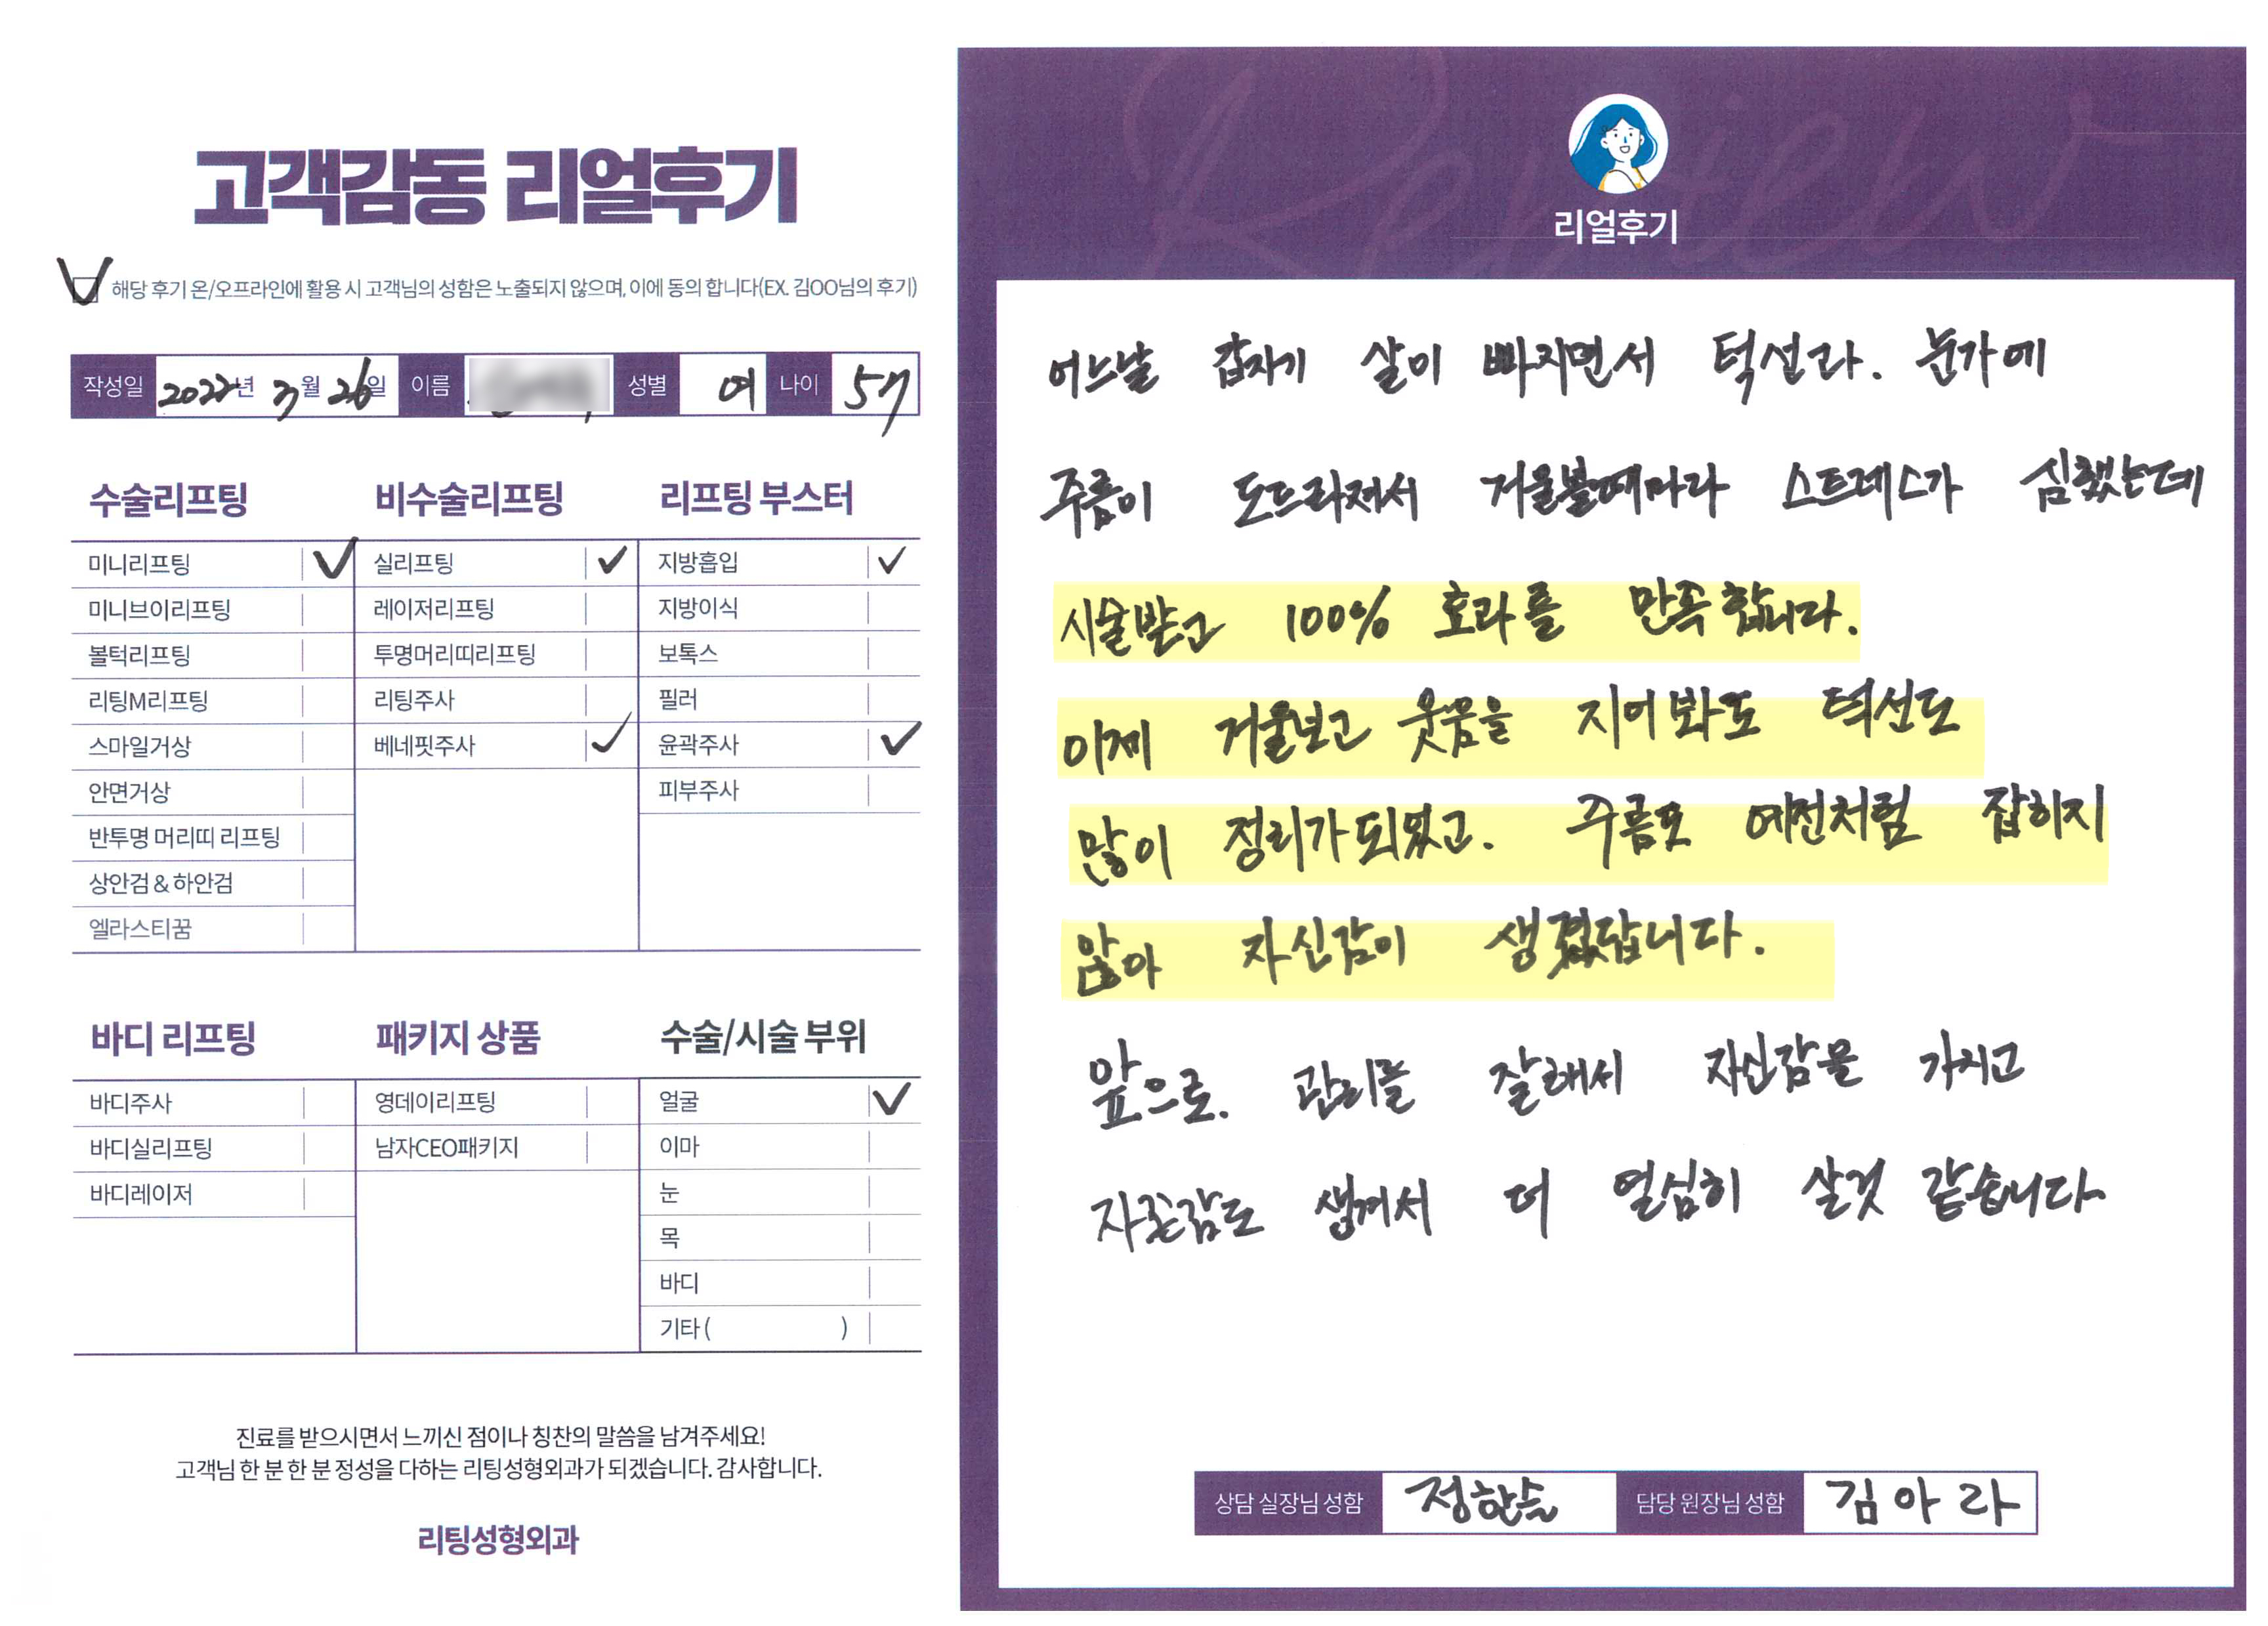 고객감동 리얼후기
해당 후기 온/오프라인에 활용 시 고객님의 성함은 노출되지 않으며, 이에 동의 합니다(EX. 김OO님의 후기)
작성일 2022년 3월 26일 이름 성별 여 나이 57
수술리프팅 비수술리프팅 리프팅 부스터
미니리프팅 실리프팅 지방흡입
미니브이리프팅 레이저리프팅 지방이식
볼턱리프팅 투명머리띠리프팅 보톡스
리팅M리프팅 리팅주사 필러
스마일거상 베네핏주사 윤곽주사
안면거상 피부주사
반투명 머리띠 리프팅
상안검 & 하안검
엘라스티꿈
바디 리프팅 패키지 상품 수술/시술 부위
바디주사 영데이리프팅 얼굴
바디실리프팅 남자CEO패키지 이마
바디레이저 눈
목
바디
기타 ( )
진료를 받으시면서 느끼신 점이나 칭찬의 말씀을 남겨주세요!
고객님 한 분 한 분 정성을 다하는 리팅성형외과가 되겠습니다. 감사합니다.
리팅성형외과
Review
리얼후기
어느날 갑자기 살이 빠지면서 턱선라. 눈가에
주름이 도드라져서 거울볼때마다 스트레스가 심했는데
시술받고 100% 효과를 만족합니다.
이제 거울보고 웃음을 지어봐도 턱선도
많이 정리가되었고. 주름도 예전처럼 잡히지
않아 자신감이 생겼답니다.
앞으로. 관리를 잘해서 자신감을 가지고
자존감도 생겨서 더 열심히 살것 같습니다
상담 실장님 성함 정한슬 담당 원장님 성함 김아라